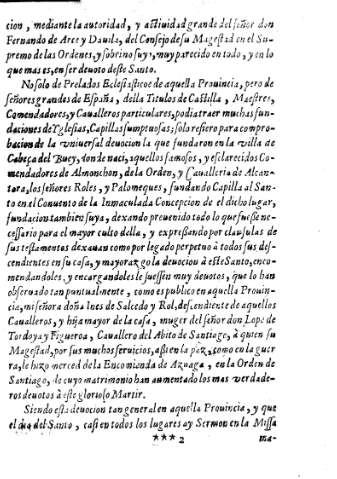 cion, mediante la autoridad, y actiuidad grande del señor don
Fernando de Arce y Dauila, del Consejo de su Magestad en el Su-
premo de las Ordenes, y sobrino suyo, muy parecido en todo, y en lo
que mas es, en ser deuoto deste Santo.
No solo de Prelados Eclesiasticos de aquella Prouincia, pero de
señores grandes de España, della Titulos de Castilla, Maestres,
Comendadores, y Caualleros particulares, podia traer muchas fun-
daciones de Yglesias, Capillas sumptuosas; solo refiero para compro-
bacion de la vniuersal deuocion la que fundaron en la villa de
Cabeça del Buey, donde naci, aquellos famosos, y esclarecidos Co-
mendadores de Almorchon, de la Orden, y Caualleria de Alcan-
tara, los señores Roles, y Palomeques, fundando Capilla al San-
to en el Conuento de la Inmaculada Concepcion de el dicho lugar,
fundacion tambien suya, dexando preuenido todo lo que fuesse ne-
cessario para el mayor culto della, y expressando por clausulas de
sus testamentos dexauan como por legado perpetuo à todos sus des-
cendientes en su casa, y mayorazgo la deuocion à este Santo, enco-
mendandoles, y encargandoles le fuessen muy deuotos, que lo han
obseruado tan puntualmente, como es publico en aquella Prouin-
cia, mi señora doña Ines de Salcedo y Rol, descendiente de aquellos
Caualleros, y hija mayor de la casa, muger del señor don Lope de
Tordoya y Figueroa, Cauallero del Abito de Santiago, à quien su
Magestad, por sus muchos seruicios, assi en la paz, como en la guer
ra, le hizo merced de la Encomienda de Azuaga, en la Orden de
Santiago, de cuyo matrimonio han aumentado los mas verdade-
ros deuotos à este glorioso Martir.
Siendo esta deuocion tan general en aquella Prouincia, y que
el dia del Santo, casi en todos los lugares ay Sermon en la Missa
*** 2 ma-